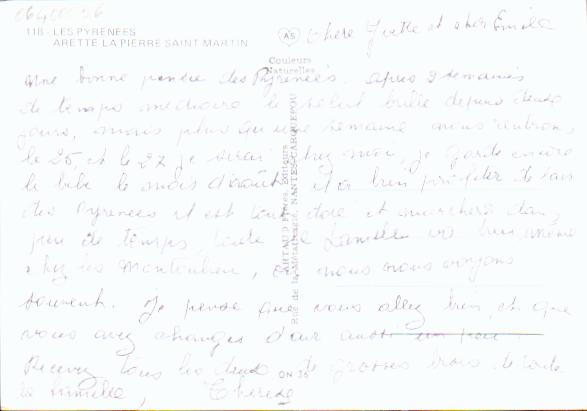 06400 96
118 - LES PYRENEES
ARETTE LA PIERRE SAINT MARTIN
AS
Couleurs
Naturelles
ARTAUD Frères, Éditeurs
Rue de la Métallurgie, NANTES-CARQUEFOU
Chère Yvette et cher Emile
une bonne pensée des Pyrénées. après 2 semaines
de temps médiocre le soleil brille depuis deux
jours, mais plus qu'une semaine nous rentrons
le 25, et le 27 je serai chez moi, je garde encore
le bébé le mois d'août il a bien profité de l'air
des Pyrénées il est tout doré et marchera dans
peu de temps, toute la famille va bien, même
chez les Montoulieu, nous nous voyons
souvent. Je pense que vous allez bien, et que
vous avez changés d'air aussi un peu.
Recevez tous les deux de grosses bises de toute
la famille, Thérèse
ON 36